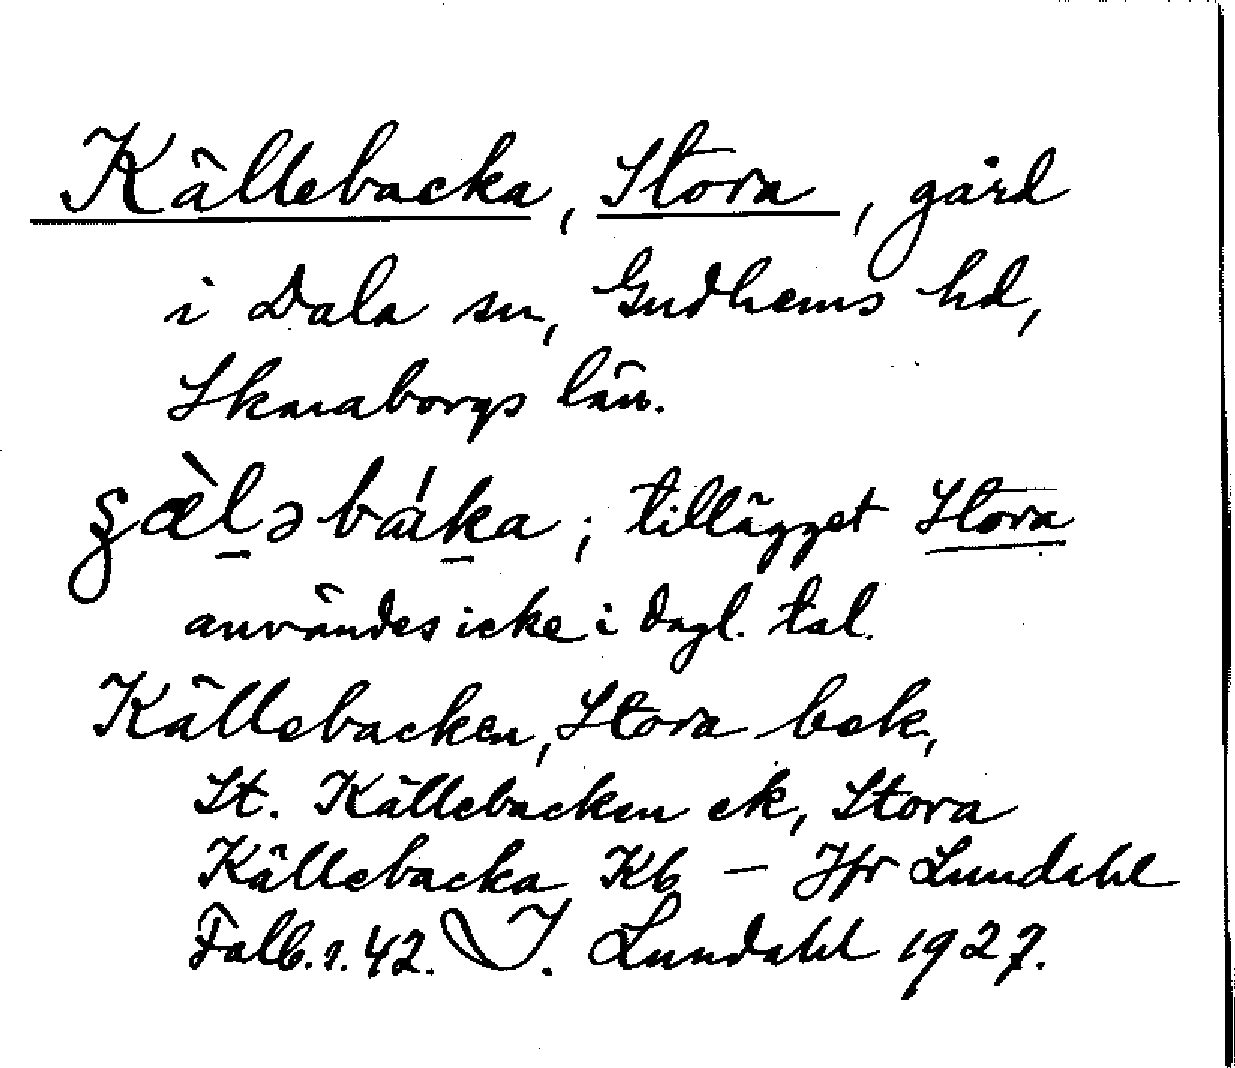 Källebacka, Stora, gård
i Dala sn, Gudhems hd,
Skaraborgs län.
tillägget Stora
användes icke i dagl. tal.
Källebacken, Stora bek,
St. Källebacken ek, Stora
Källebacka Kb – Jfr Lundahl
Falb. s. 42. I. Lundahl 1927.